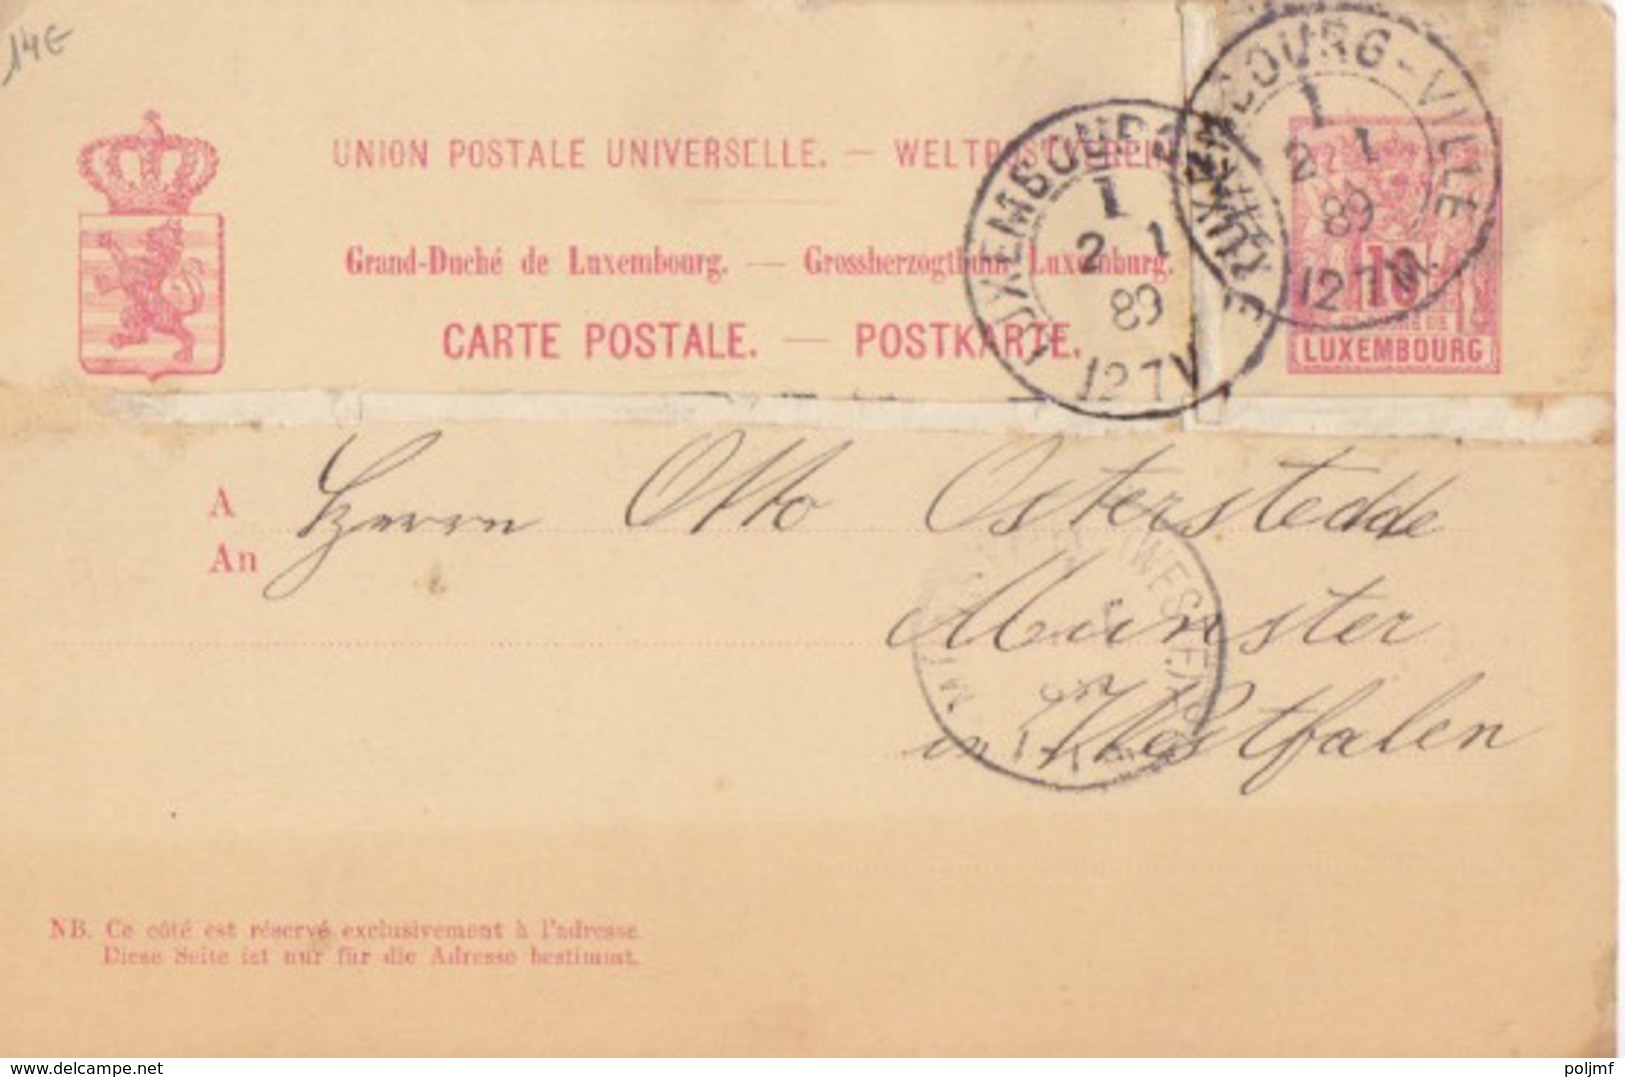 14€
UNION POSTALE UNIVERSELLE. —
Grand-Duché de Luxembourg. — Grossherzogthum Luxemburg.
CARTE POSTALE. — POSTKARTE.
LUXEMBOURG-VILLE
1
2 1
89
12 7 V
LUXEMBOURG-VILLE
1
2 1
89
12 7 M.
10
LUXEMBOURG
A
An
Herrn Otto Osterstedde
Munster
in Westfalen
NB. Ce côté est réservé exclusivement à l'adresse
Diese Seite ist nur für die Adresse bestimmt.
www.delcampe.net
poljmf